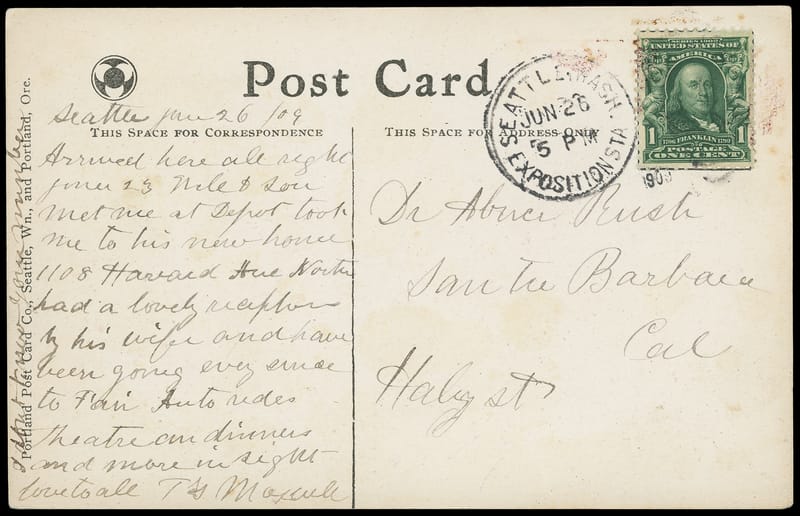 Post Card
THIS SPACE FOR CORRESPONDENCE
THIS SPACE FOR ADDRESS ONLY
Portland Post Card Co., Seattle, Wn., and Portland, Ore.
Seattle June 26/09
Arrived here all right
June 23 Nile & Son
met me at Depot took
me to his new home
1108 Harvard Ave North
had a lovely reception
by his wife and have
been going ever since
to Fair Auto rides
theatre an dinners
and more in sight
love to all T G Maxwell
dont know your number
SEATTLE, WASH.
JUN 26
5 PM
EXPOSITION STA
1909
SERIES 1902
UNITED STATES OF
AMERICA
1 1
1706 FRANKLIN 1790
POSTAGE
ONE CENT
Dr Abner Rush
Santa Barbara
Cal
Haley st